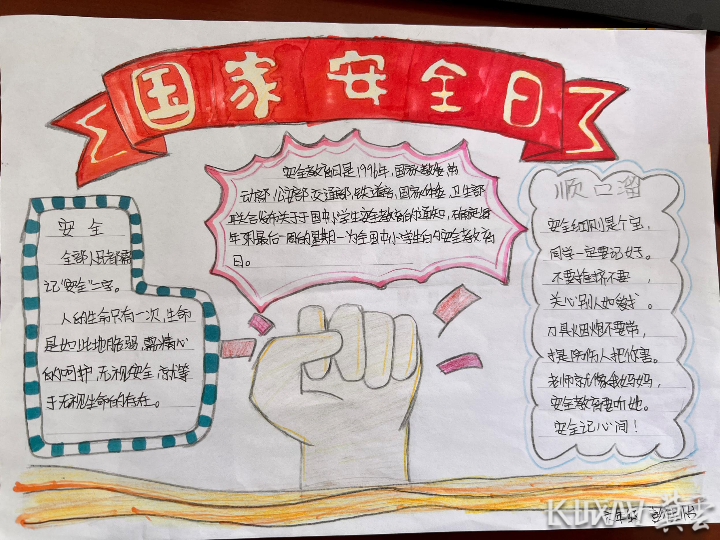 国家安全日
安全教育日是1996年,国家教委、劳
动部、公安部、交通部、铁道部、国家体委、卫生部
联合发布关于于国中小学生安全教育的通知,确定每
年3月最后一周的星期一为全国中小学生的安全教育
日。
安全
全部人民都需
记"安全"二字。
人的生命只有一次,生命
是如此地脆弱,需精心
的呵护,无视安全,就等
于无视生命的存在。
顺口溜
安全细则是个宝,
同学一定要记好。
不要推挤不要,
关心别人如
刀具烟炮不要带,
伤人把你害。
老师就像我妈妈,
安全教育要听她。
安全记心间!
KUXAN